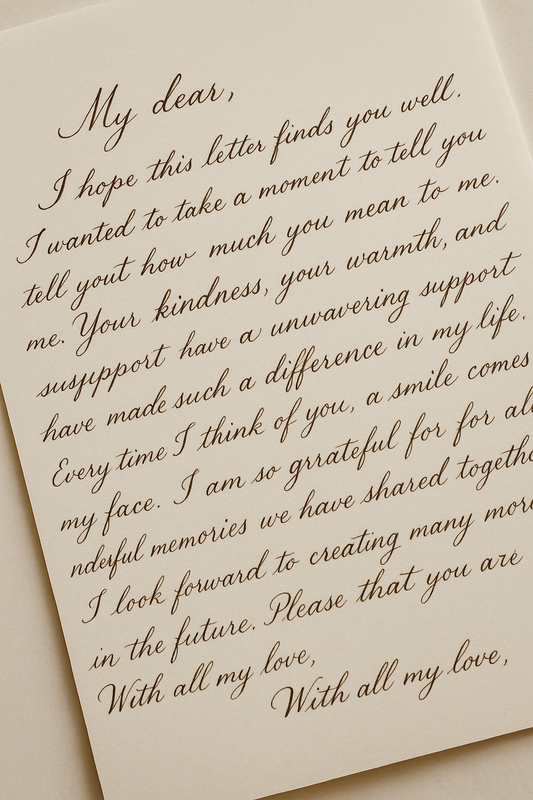 My dear,
I hope this letter finds you well.
I wanted to take a moment to tell you
tell yout how much you mean to me.
me. Your kindness, your warmth, and
susppport have a unwavering support
have made such a difference in my life.
Every time I think of you, a smile comes
my face. I am so grrateful for for all
nderful memories we have shared togethe
I look forward to creating many more
in the future. Please that you are
With all my love,
With all my love,